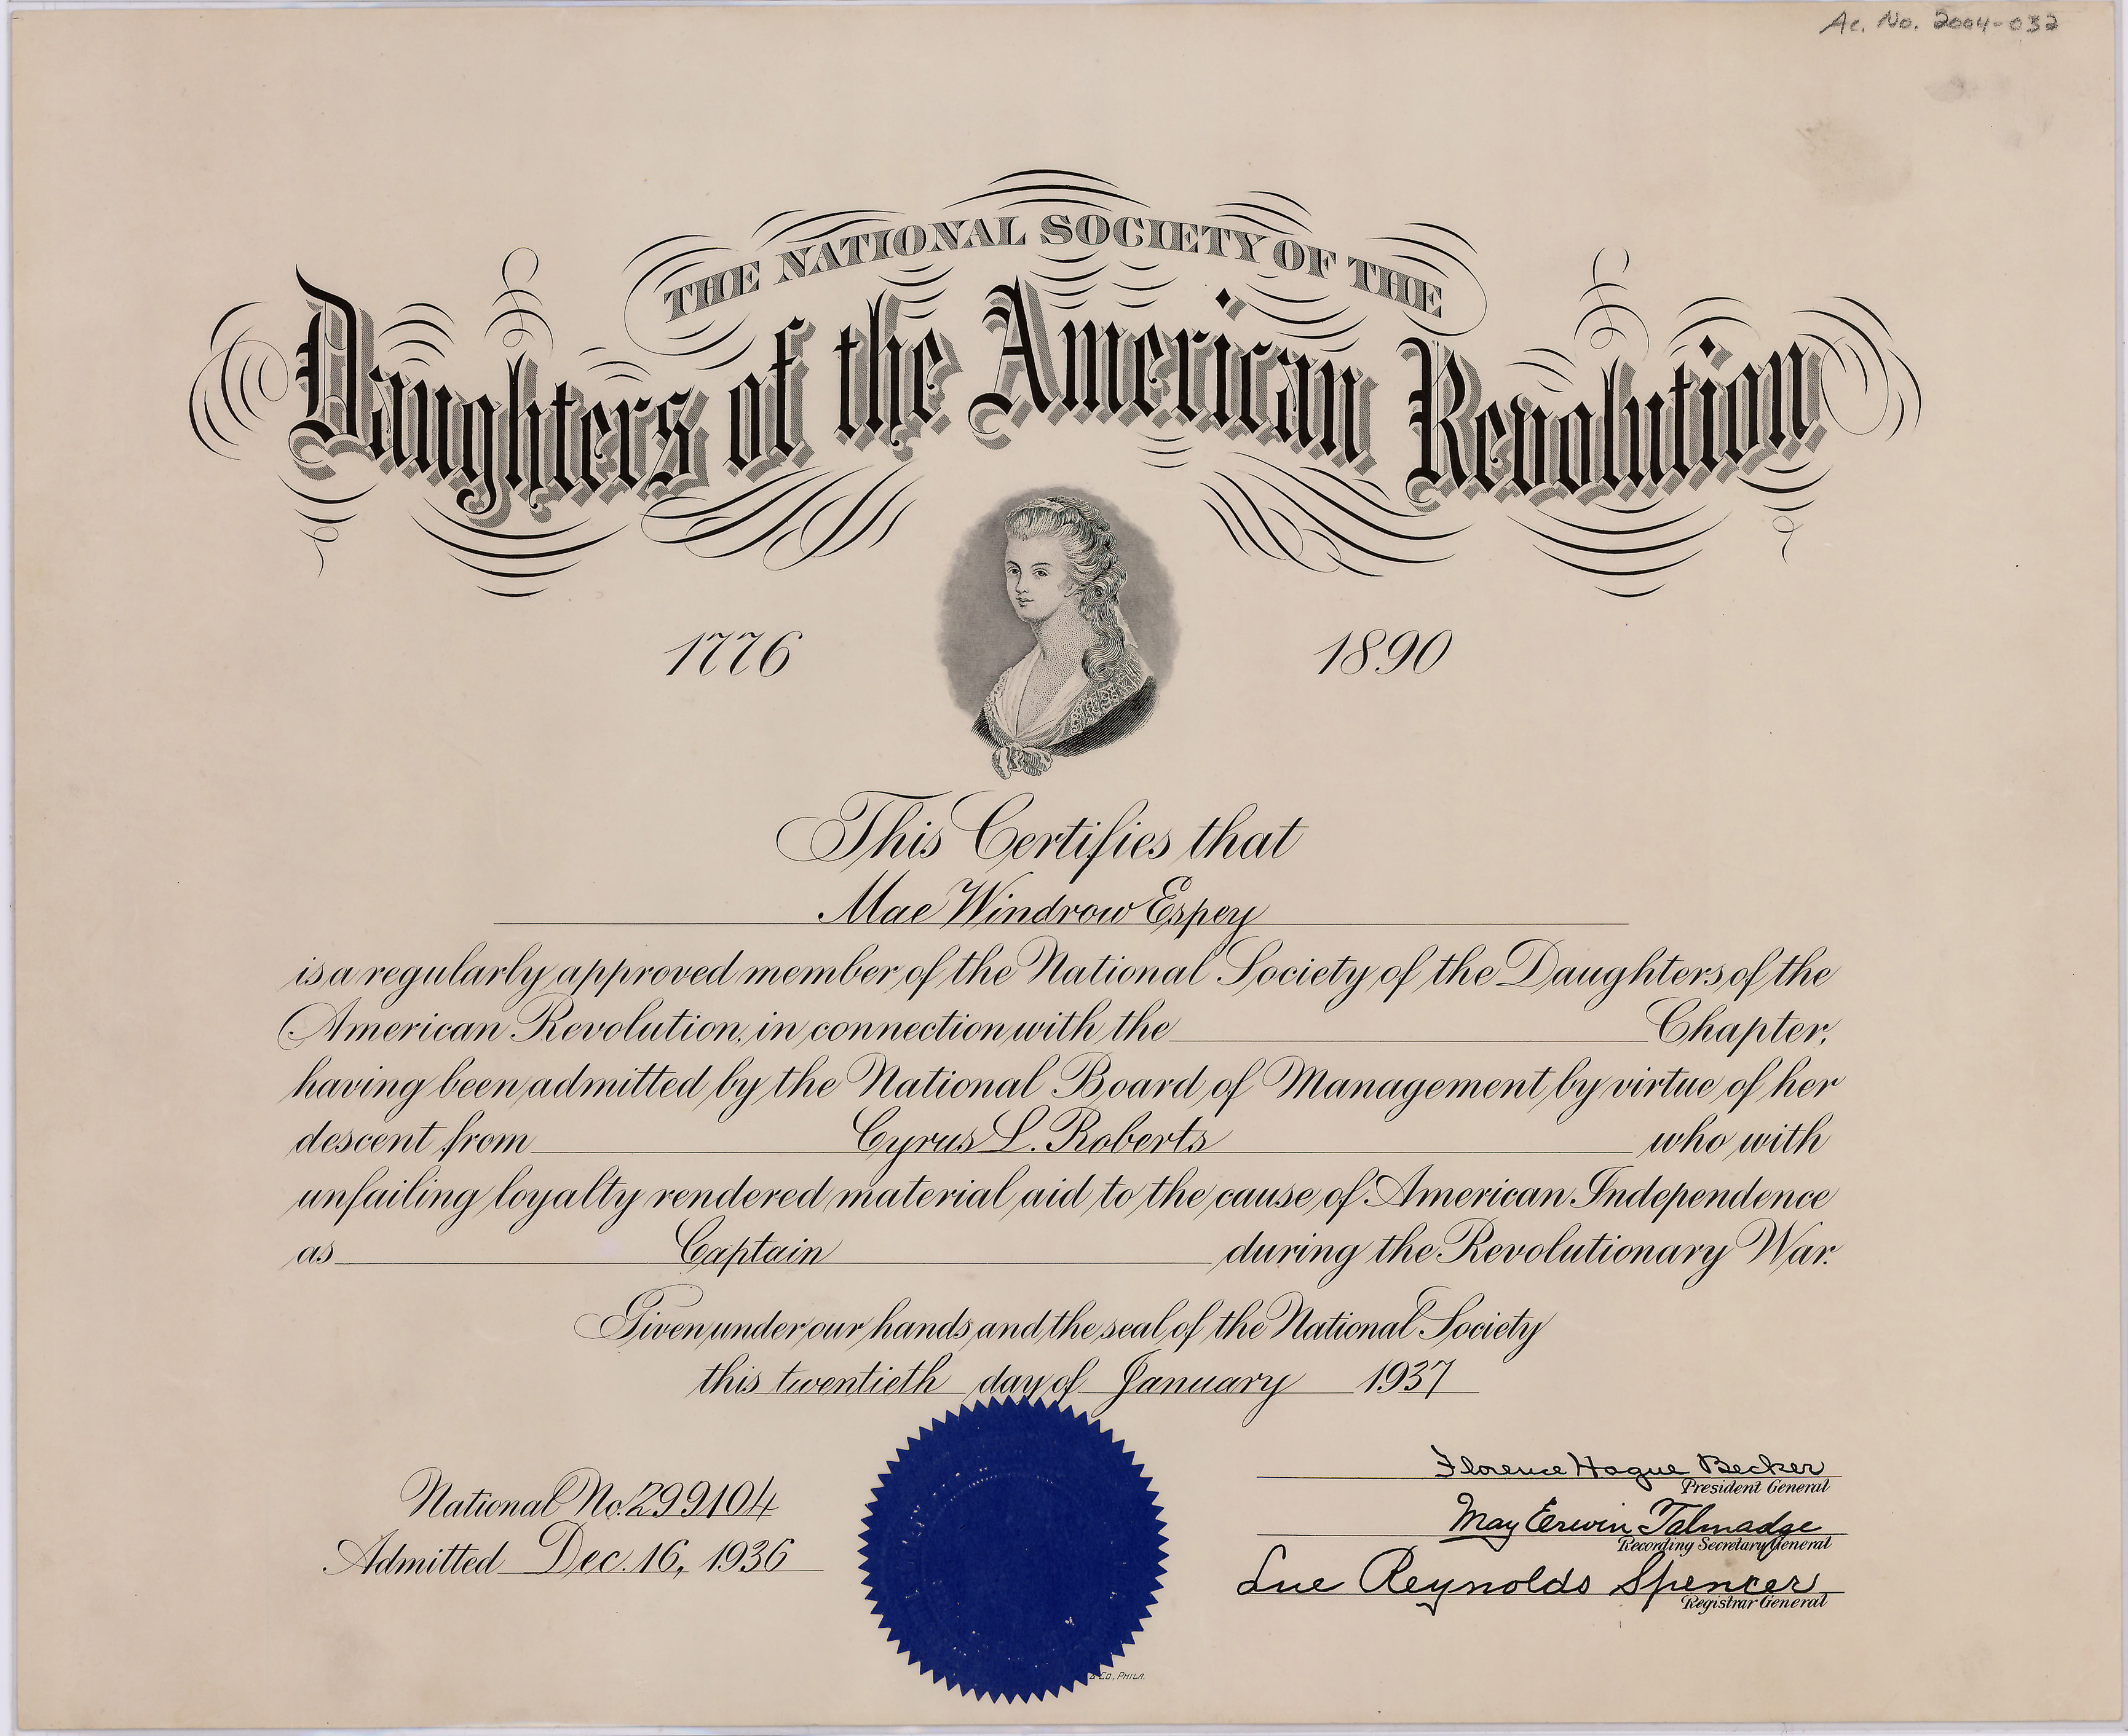 Ac. No. 2004-032
THE NATIONAL SOCIETY OF THE
Daughters of the American Revolution
1776 1890
This Certifies that
Mae Windrow Espey
is a regularly approved member of the National Society of the Daughters of the
American Revolution, in connection with the Chapter,
having been admitted by the National Board of Management by virtue of her
descent from Cyrus L. Roberts who with
unfailing loyalty rendered material aid to the cause of American Independence
as Captain during the Revolutionary War.
Given under our hands and the seal of the National Society
this twentieth day of January 1937
National No. 299104
Admitted Dec. 16, 1936
Florence Hague Becker
President General
May Erwin Talmadge
Recording Secretary General
Lue Reynolds Spencer
Registrar General
& CO., PHILA.